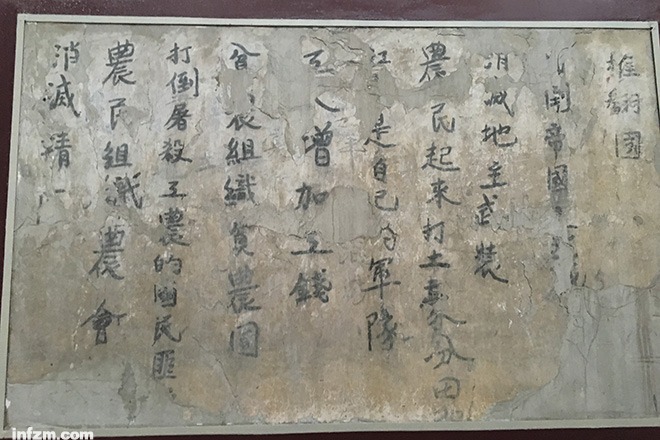 推翻國
倒帝國
消滅地主武裝
農民起來打土豪分田
紅 是自己的軍隊
工人增加工錢
農組織貧農團
打倒屠殺工農的國民匪
農民組織農會
消滅靖
infzm.com